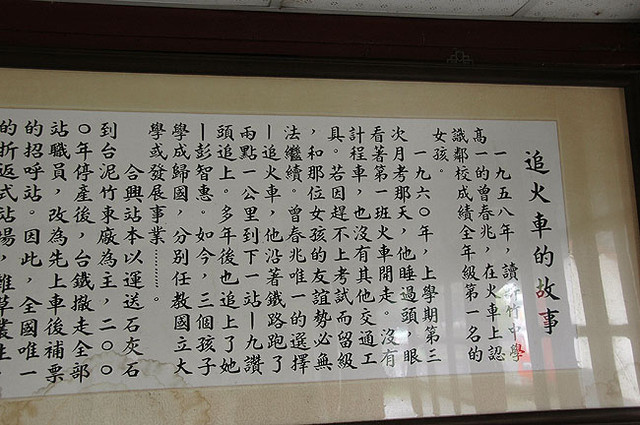 追火車的故事
一九五八年，讀新竹中學
高一的曾春兆，在火車上認
識鄰校成績全年級第一名的
女孩。
一九六〇年，上學期第三
次月考那天，他睡過頭，眼
看著第一班火車開走。沒有
計程車，也沒有其他交通工
具。若因趕不上考試而留級
，和那位女孩的友誼勢必無
法繼續。曾春兆唯一的選擇
—追火車，他沿著鐵路跑了
兩點一公里到下一站—九讚
頭追上。多年後也追上了她
—彭智惠。如今，三個孩子
學成歸國，分別任教國立大
學或發展事業………。
合興站本以運送石灰石
到台泥竹東廠為主，二〇〇
〇年停產後，台鐵撤走全部
站職員，改為先上車後補票
的招呼站。因此，全國唯一
的折返式站場，雜草叢生